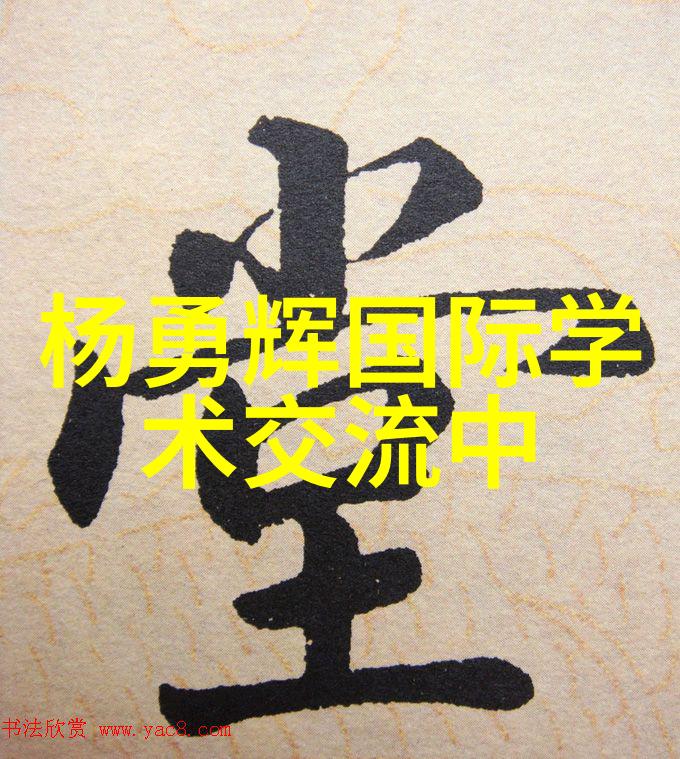 堂
杨勇辉国际学
术交流中
书法欣赏 www.yac8.com